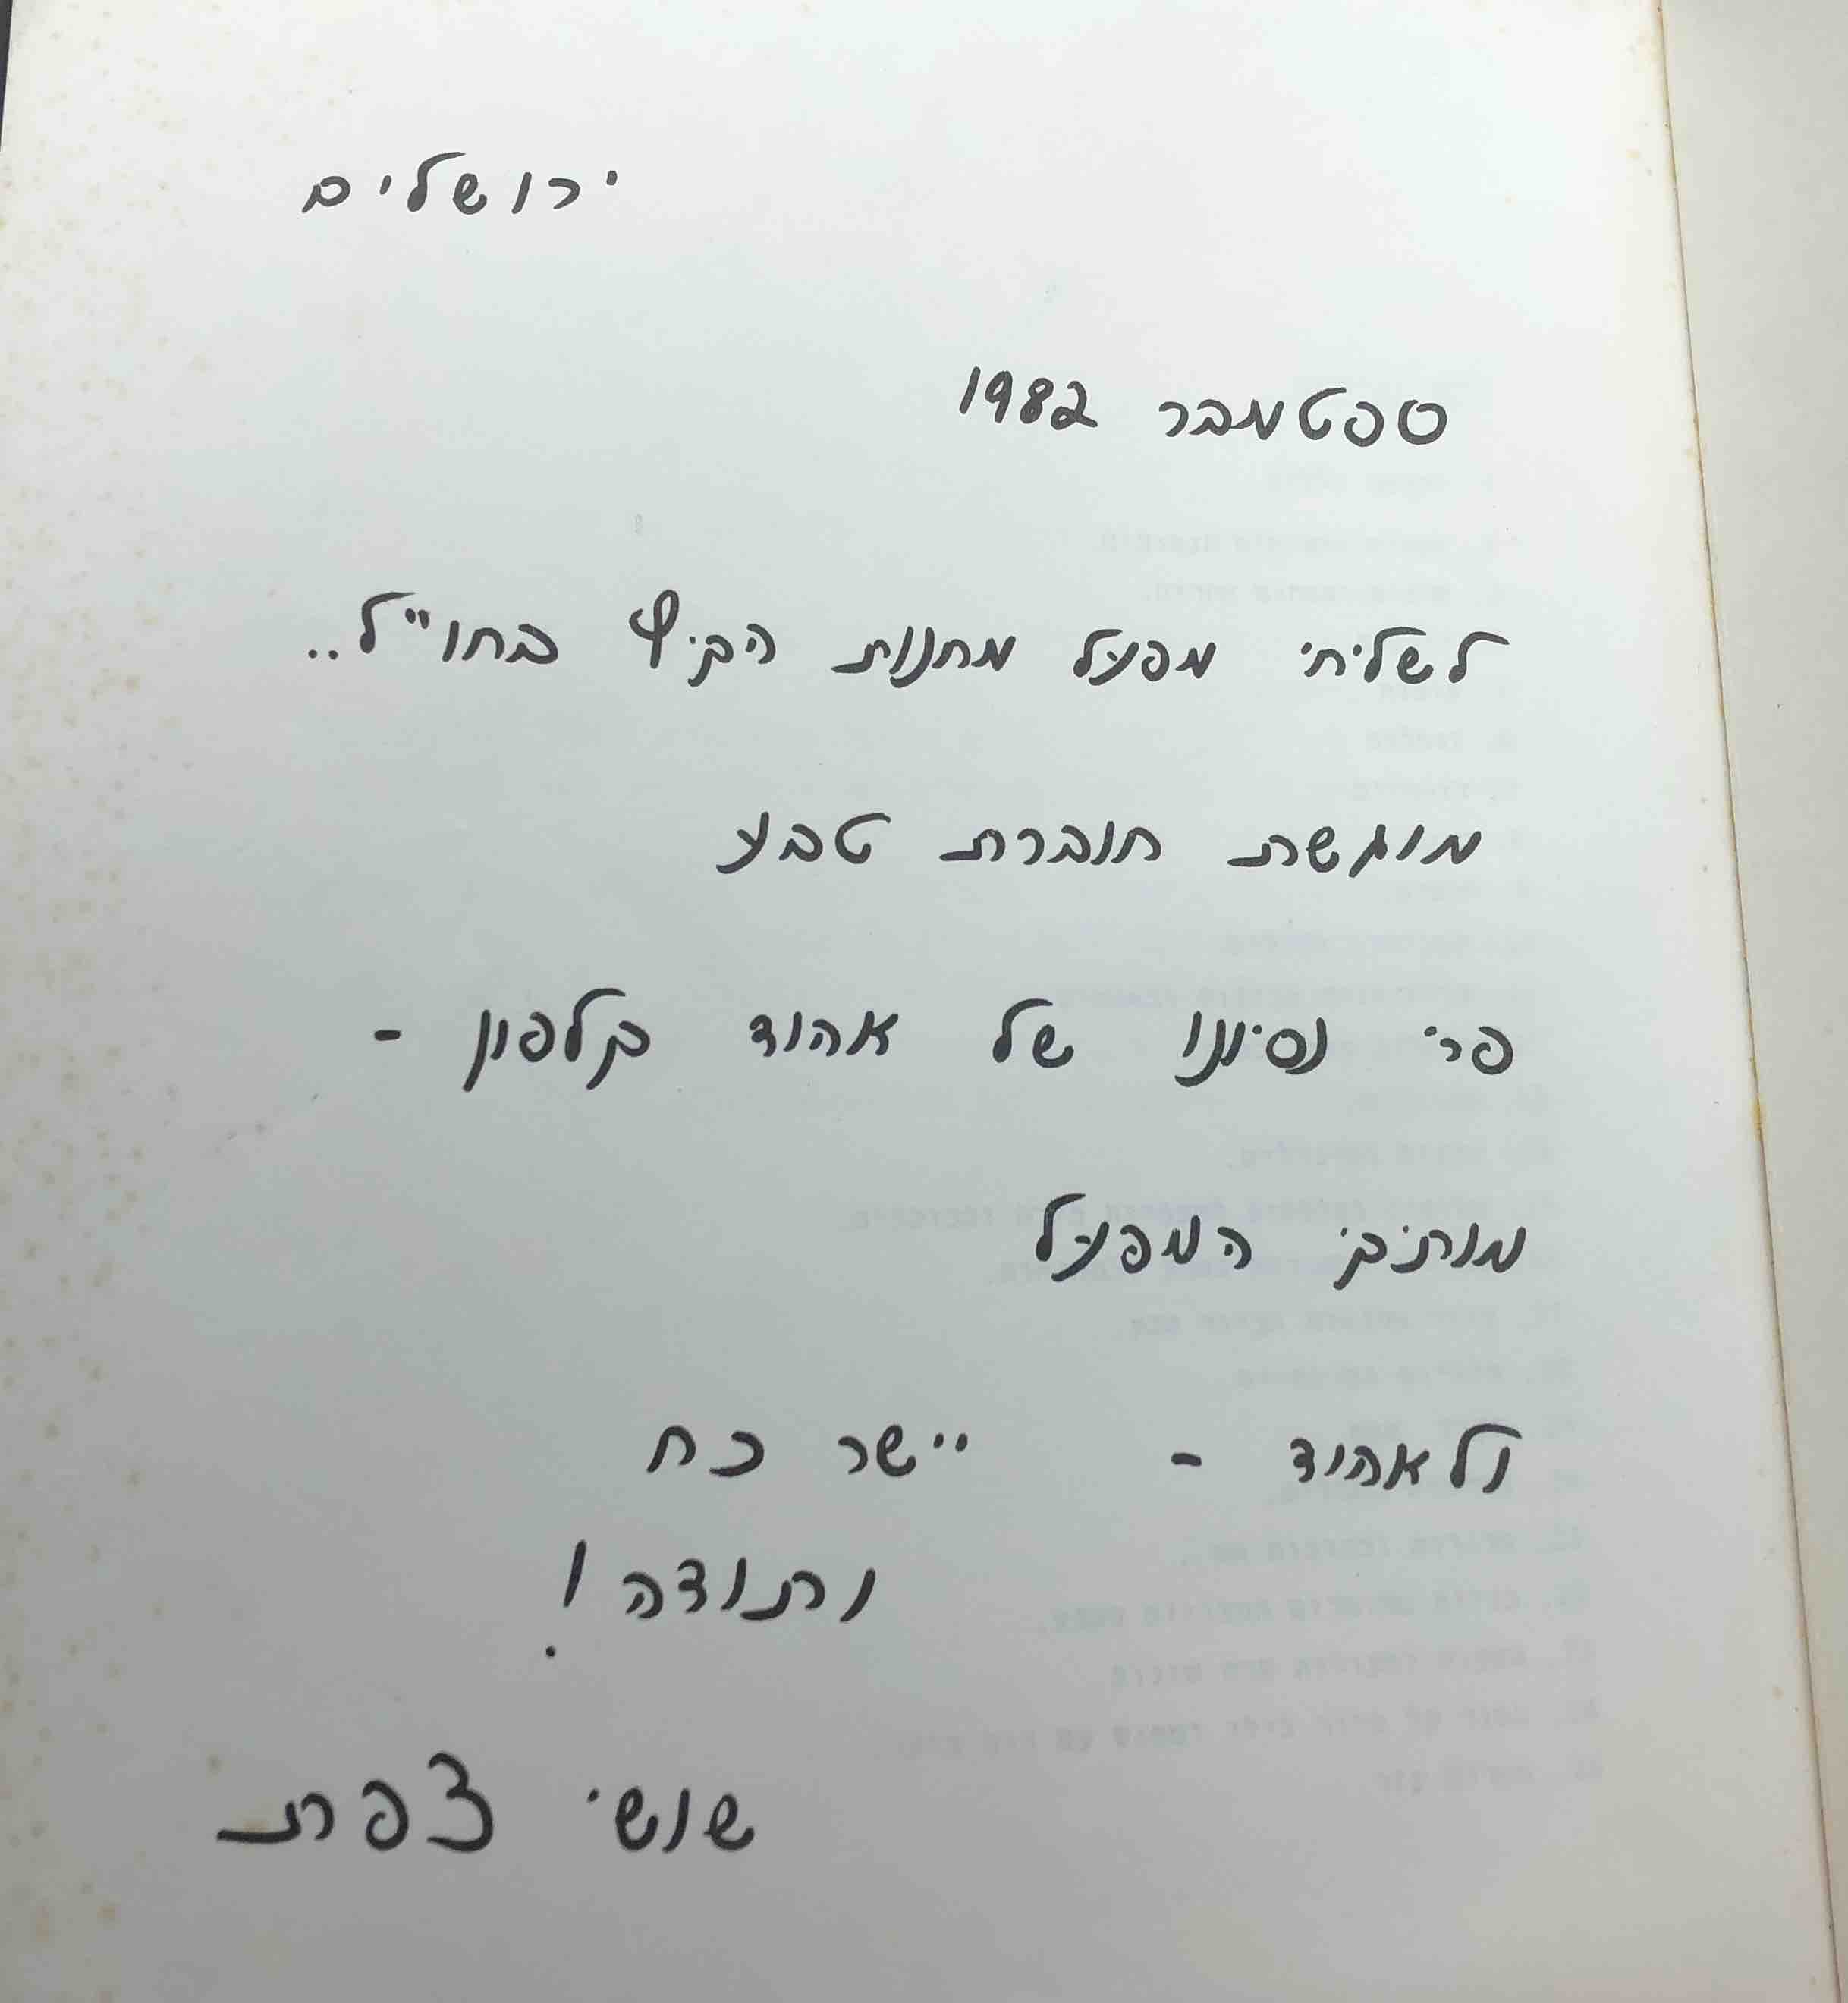 ירושלים
ספטמבר 1982
לשליחי מפעל מחנות הקיץ בחו"ל..
מוגשת חוברת טבע
פרי נסיונו של אהוד קלפון -
מותיקי המפעל
ולאהוד - יישר כח
ותודה!
שושי צפת